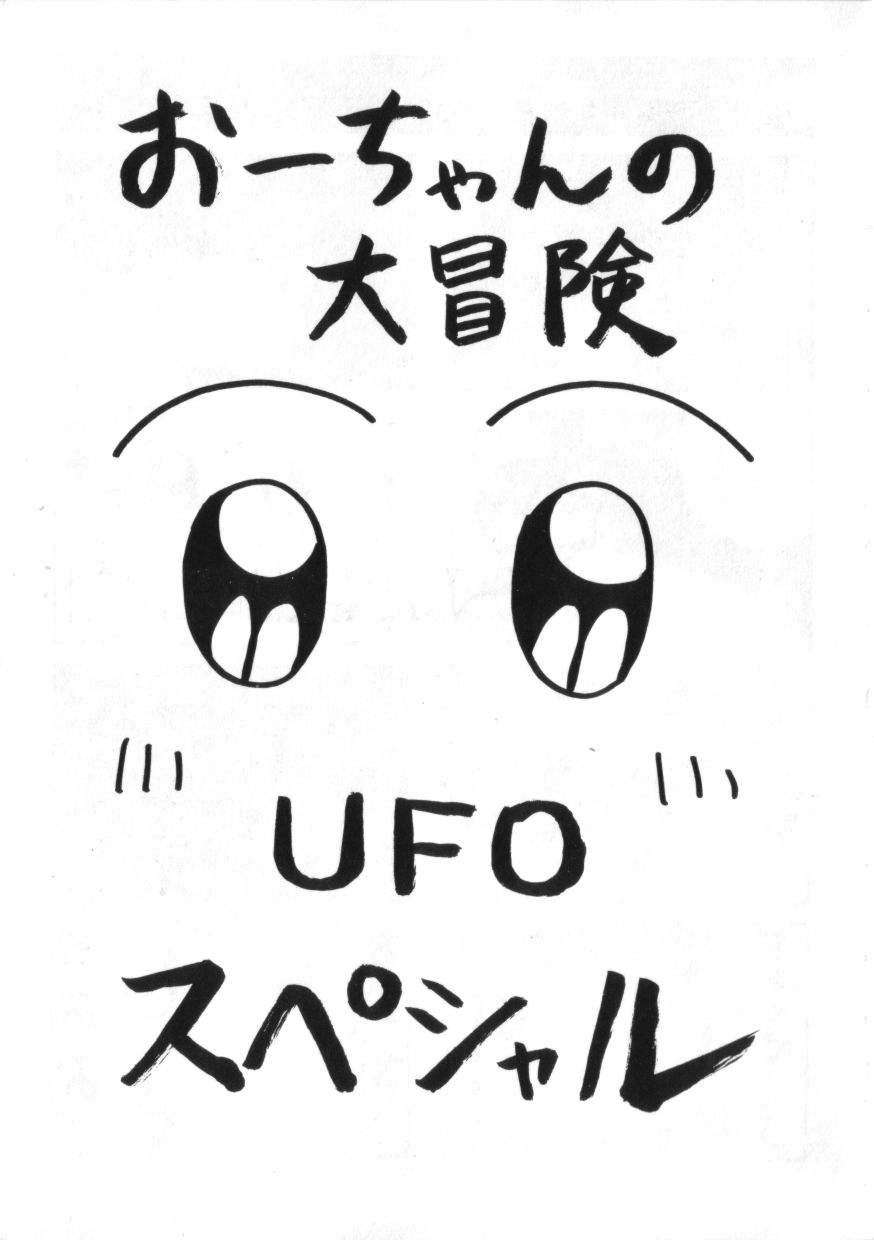 おーちゃんの
大冒険
UFO
スペシャル